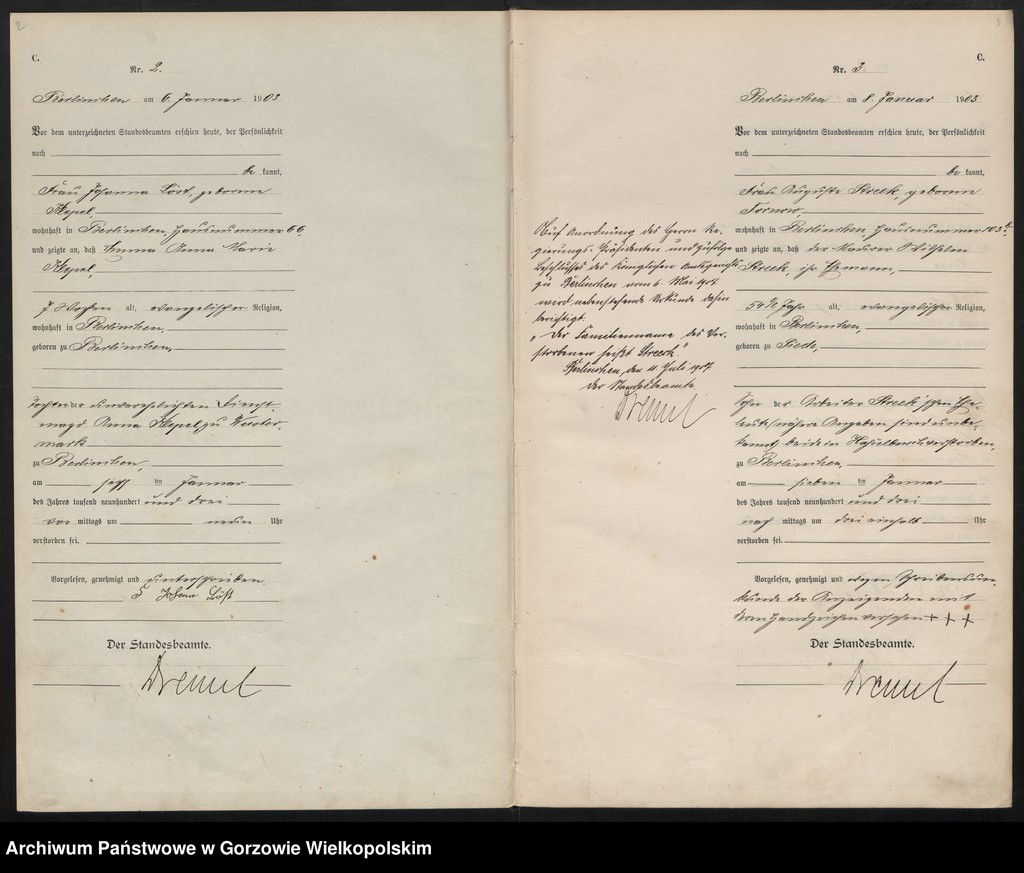 2
C.
Nr. 2.
Berlinchen am 6. Januar 1903
Vor dem unterzeichneten Standesbeamten erschien heute, der Persönlichkeit
nach
be kannt,
Frau Johanna Löst, geborene
Klepel,
wohnhaft in Berlinchen, Hausnummer 66
und zeigte an, daß Emma Anna Marie
Klepel,
7 Wochen alt, evangelischer Religion,
wohnhaft in Berlinchen,
geboren zu Berlinchen,
Tochter der unverehelichten Dienst-
magd Anna Klepel, zu Wuster-
mark
zu Berlinchen,
am sechs ten Januar
des Jahres tausend neunhundert und drei
vor mittags um neun Uhr
verstorben sei.
Vorgelesen, genehmigt und unterschrieben.
Löst
Der Standesbeamte.
3
C.
Nr. 3.
Berlinchen am 8. Januar 1903
Vor dem unterzeichneten Standesbeamten erschien heute, der Persönlichkeit
nach
be kannt,
Frau Auguste Streek, geborene
Tornow,
wohnhaft in Berlinchen, Hausnummer 103
und zeigte an, daß der Maurer Wilhelm
Streek, ihr Ehemann,
54 1/2 Jahr alt, evangelischer Religion,
wohnhaft in Berlinchen,
geboren zu
Sohn der Arbeiter Streek'schen Ehe-
leute, nähere Angaben sind unbe-
kannt, beide in verstorben,
zu Berlinchen,
am sieben ten Januar
des Jahres tausend neunhundert und drei
nach mittags um drei einhalb Uhr
verstorben sei.
Vorgelesen, genehmigt und wegen Schreibensun-
kunde der Anzeigenden mit
deren Handzeichen versehen + + +
Der Standesbeamte.
Auf Anordnung des Herrn Re-
gierungs-Präsidenten und zufolge
Beschlusses des Königlichen Amtsgerichts
zu Berlinchen vom 6. Mai 1907
wird nebenstehende Urkunde dahin
berichtigt:
„Der Familienname des Ver-
storbenen heißt Streeck."
Berlinchen, den 11. Juli 1907.
Der Standesbeamte
Archiwum Państwowe w Gorzowie Wielkopolskim